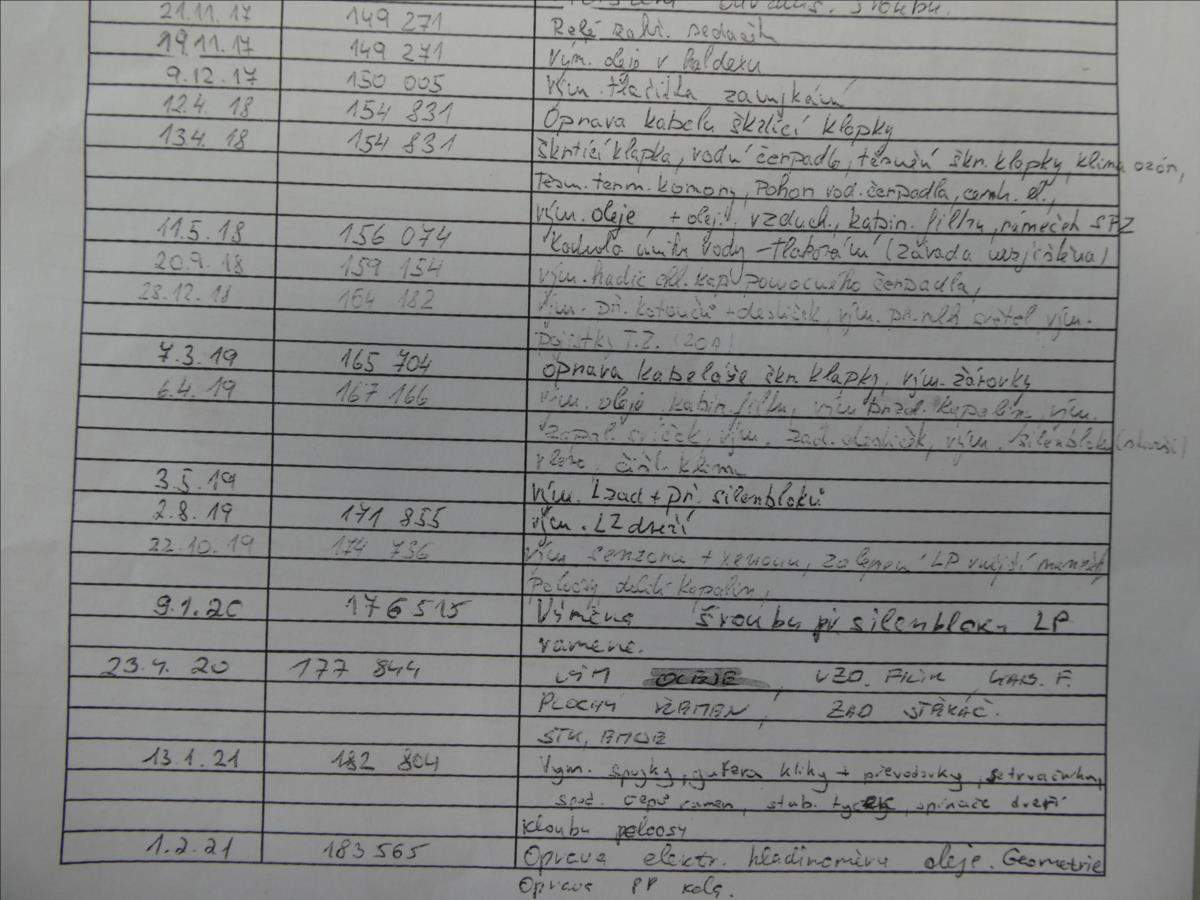 šroubu.
21.11.17 149 271 Relé zahř. sedaček
19.11.17 149 271 Vým. oleje v haldexu
9.12.17 150 005 Vým. tlačítka zamykání
12.4. 18 154 831 Oprava kabelu škrtící klapky
13.4. 18 154 831 škrtící klapka, vodní čerpadlo, těsnění škr. klapky, klima ozón,
Těsn. term. komory, Pohon vod. čerpadla,
vým. oleje + olej. vzduch. kabin. filtru, rámeček SPZ
11.5.18 156 074 Kontrola úniku vody - tlakování (závada nezjištěna)
20.9.18 159 154 vým. hadic chl. kap. pomocného čerpadla,
28.12.18 164 182 Vým. př. kotoučů + destiček, vým. př. mlh světel vým.
Pojistky T.Z. (20A)
7.3.19 165 704 oprava kabeláže škr. klapky, vým. žárovky
6.4.19 167 166 Vým. oleje kabin. filtru, vým brzd. kapalin, vým.
zapal. svíček, vým. zad. destiček, vým. silenbloku
čišt. klima
3.5.19 vým. L zad + př. silenbloků
2.8.19 171 855 vým. LZ dveří
22.10.19 174 736 vým senzoru + xenonu, zalepení LP vnější manžety
Poloosy dolití kapalin,
9.1.20 176 515 Výměna šroubu př silenbloku LP
ramene.
23.4.20 177 844 VÝM OLEJE, VZD. FILTR, KAB. F.
PLOCHÝ ŘEMEN, ZAD STĚRAČ.
STK, EMISE
13.1.21 182 804 Vým. spojky, gufera kliky + převodovky, setrvačníku,
spod. čepů ramen, stab. tyček, spínače dveří
kloubu poloosy
1.2.21 183 565 Oprava elektr. hladinoměru oleje. Geometrie
Oprava PP kola.